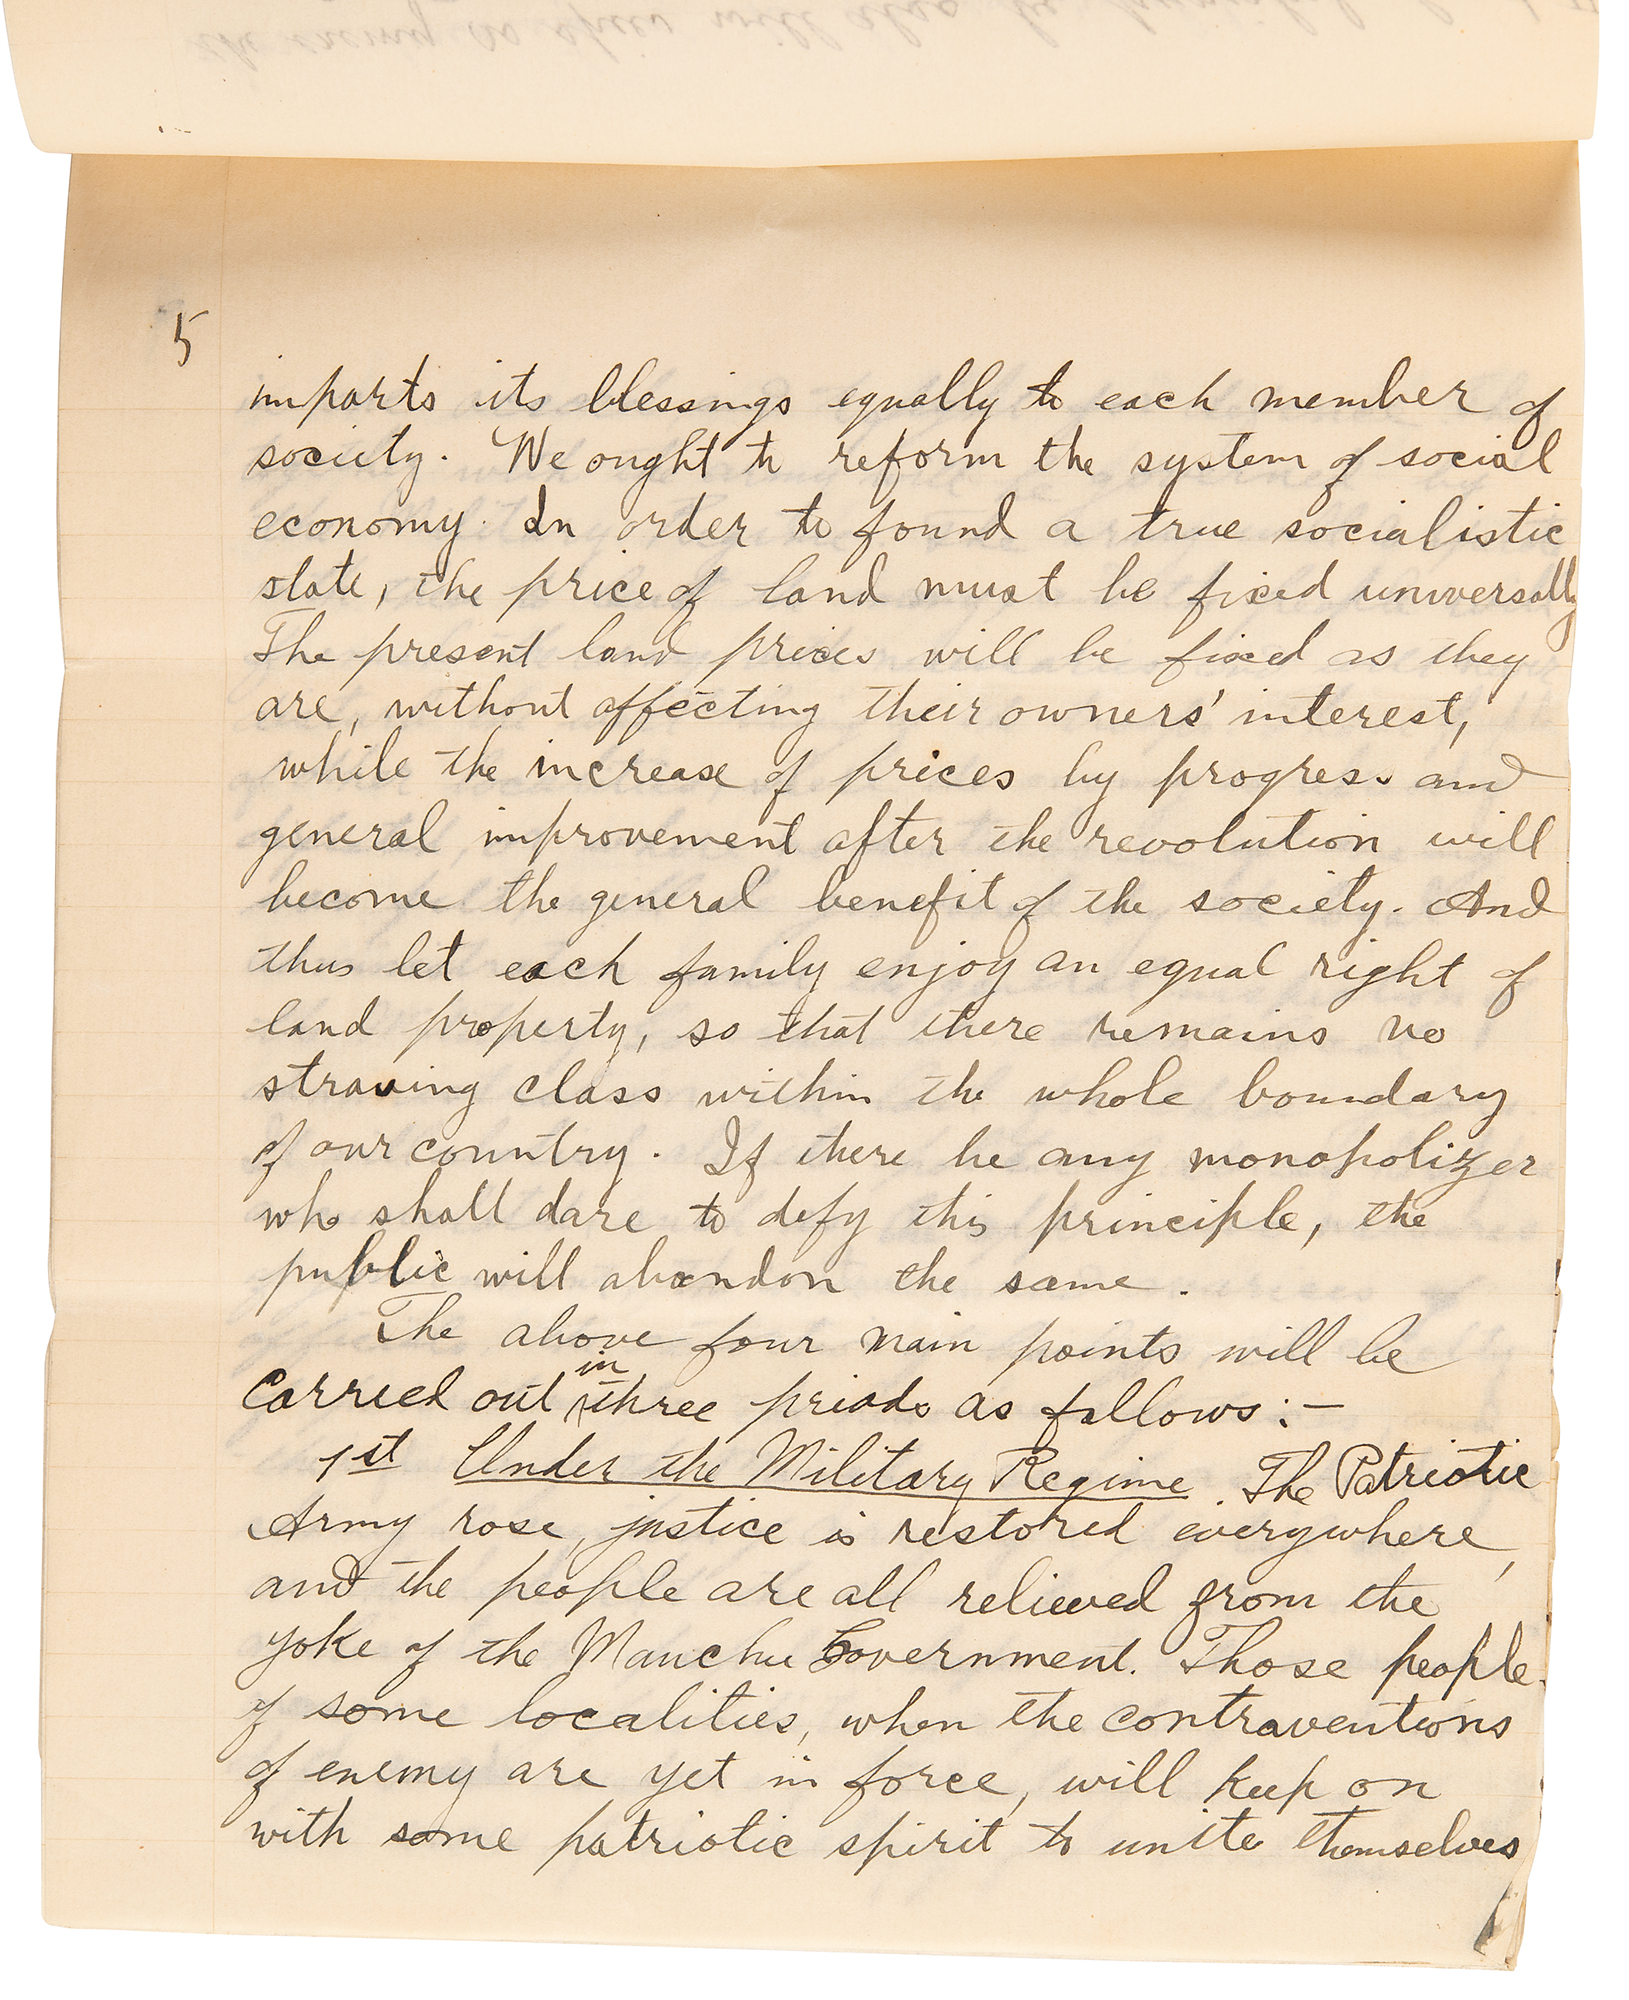 5
imparts its blessings equally to each member of
society. We ought to reform the system of social
economy. In order to found a true socialistic
state, the price of land must be fixed universally
The present land prices will be fixed as they
are, without affecting their owners' interest,
while the increase of prices by progress and
general improvement after the revolution will
become the general benefit of the society. And
thus let each family enjoy an equal right of
land property, so that there remains no
straving class within the whole boundary
of our country. If there be any monopolizer
who shall dare to defy this principle, the
public will abandon the same.
The above four main points will be
in
carried out three priods as follows:—
1st Under the Military Regime. The Patriotic
Army rose, justice is restored everywhere,
and the people are all relieved from the
yoke of the Manchu Government. Those people
of some localities, when the contraventions
of enemy are yet in force, will keep on
with some patriotic spirit to unite themselves